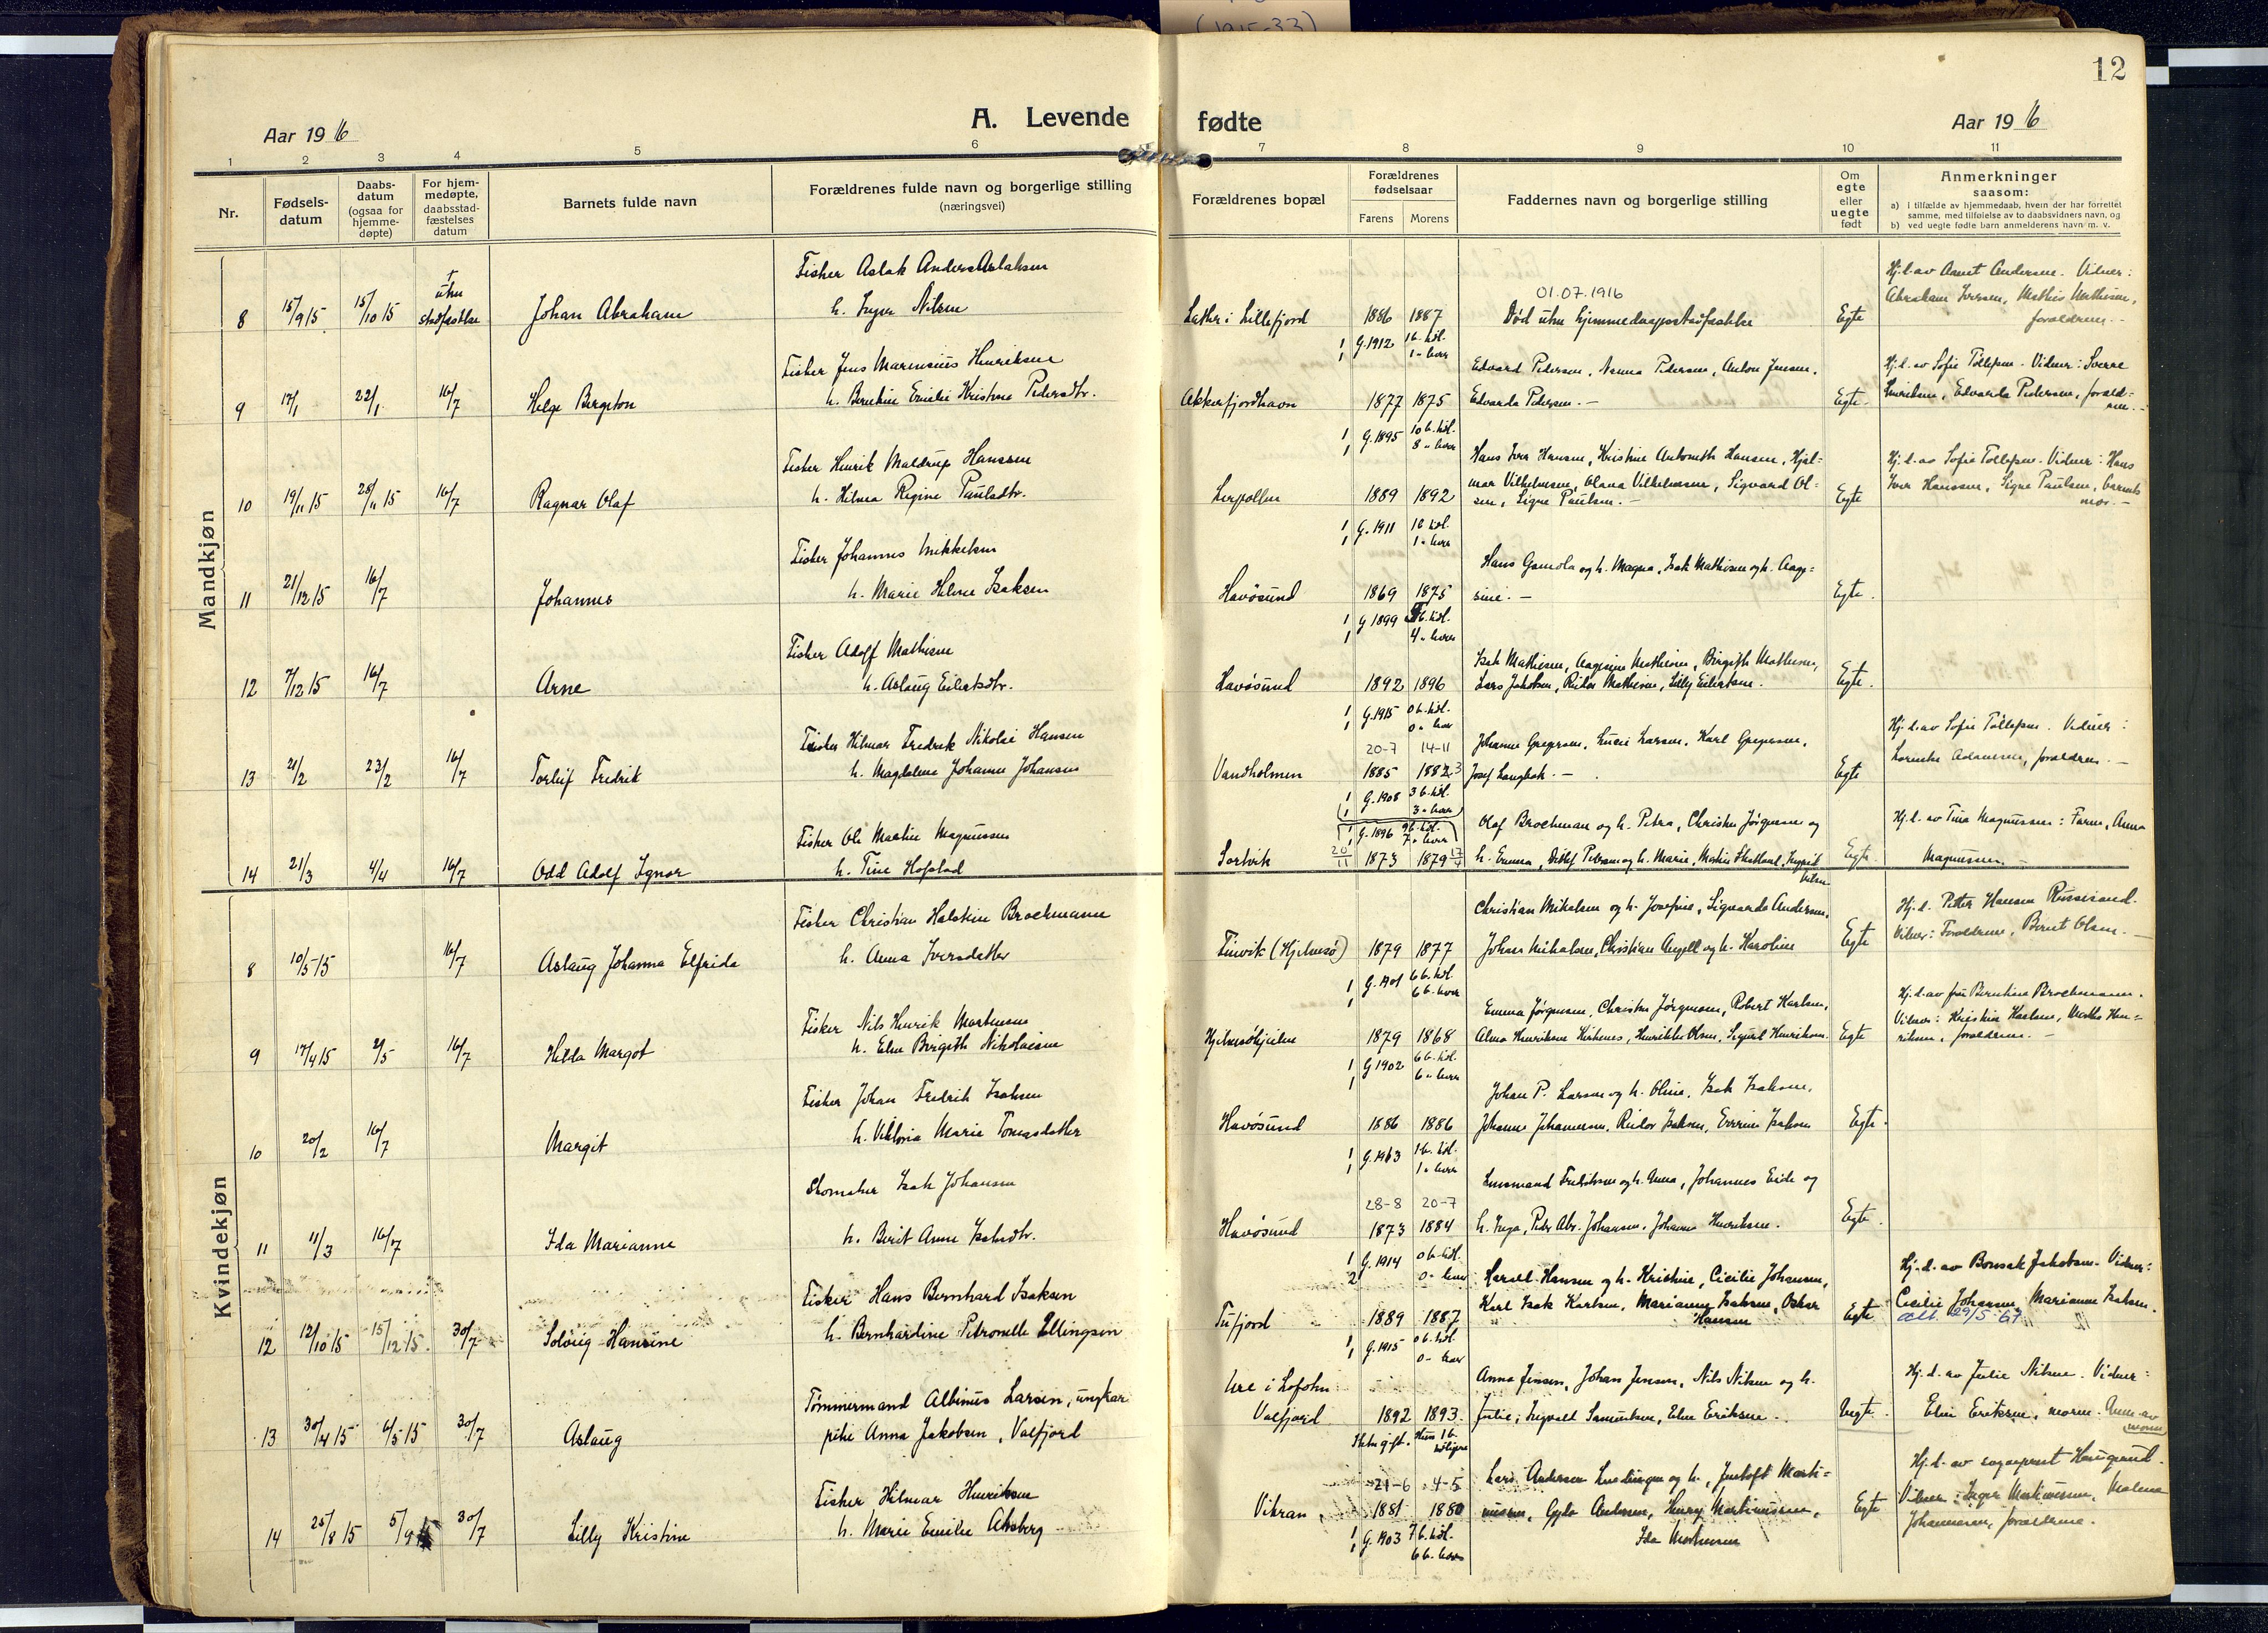 (1915-33)
12
Aar 1916
A. Levende fødte
Aar 1916
1 2 3 4 5 6 7 8 9 10 11
Nr.
Fødsels-
datum
Daabs-
datum
(ogsaa for
hjemme-
døpte)
For hjem-
medøpte,
daabsstad-
fæstelses
datum
Barnets fulde navn
Forældrenes fulde navn og borgerlige stilling
(næringsvei)
Forældrenes bopæl
Forældrenes
fødselsaar
Farens Morens
Faddernes navn og borgerlige stilling
Om
egte
eller
uegte
født
Anmerkninger
saasom:
a) i tilfælde av hjemmedaab, hvem der har forrettet
samme, med tilføielse av to daabsvidners navn, og
b) ved uegte fødte barn anmelderens navn m. v.
Mandkjøn
Fisker Aslak Anders Aslaksen
8 15/9 15 15/10 15 † uten stadfæstelse Johan Abraham h. Inger Nilsen
Lakter i Lillefjord 1886 1887 01.07.1916
Død uten hjemmedaapsstadfæstelse Egte
G. 1912 1 b. hdl. 1 " lever
Hj. d. av Aamet Andersen. Vidner:
Abraham Iversen, Mathis Mathisen,
forældrene. -
Fisker Jens Marensius Henriksen
9 17/1 22/1 16/7 Helge Bergton h. Berntine Emilie Kristine Pedersdtr.
Akkarfjordhavn 1877 1875
Edvard Pedersen, Nanna Pedersen, Anton Jensen,
Edvarda Pedersen. - Egte.
G. 1895 10 b. hdl. 8 " lever
Hj. d. av Sofie Tollefsen. Vidner: Sverre
Henriksen, Edvarda Pedersen, foræld-
rene. -
Fisker Henrik Maldrup Hanssen
10 19/11 15 28/11 15 16/7 Ragnar Olaf h. Hilma Regine Paulsdtr.
Lerpollen 1889 1892
Hans Iver Hansen, Kristine Antonette Hansen, Hjal-
mar Vilhelmsen, Olana Vilhelmsen, Sigvard Ol-
sen, Signe Paulsen. - Egte
G. 1911 1 b. hdl. 1 " lever
Hj. d. av Sofie Tollefsen. Vidner: Hans
Iver Hanssen, Signe Paulsen, barnets
mor. -
Fisker Johannes Mikkelsen
11 21/12 15 16/7 Johannes h. Marie Helene Isaksen
Havøsund 1869 1875
Hans Gamola og h. Magna, Isak Mathisen og h. Aage-
sine. - Egte.
G 1899 4 " lever
Fisker Adolf Mathisen
12 7/12 15 16/7 Arne h. Aslaug Eilertsdtr.
Havøsund 1892 1896
Isak Mathisen, Aagesine Mathisen, Birgith Mathisen,
Lars Jakobsen, Reidar Mathisen, Lilly Eilertsen. Egte.
G. 1915 0 b. hdl. 0 " lever
Fisker Hilmar Fredrik Nikolai Hansen
13 21/2 23/2 16/7 Torleif Fredrik h. Magdalene Johanne Johansen
Vandholmen 20-7 14-11
1885 1882 3
Johanne Gregersen, Lucie Larsen, Karl Gregersen,
Josef Langbak. - Egte
G. 1908 3 b. hdl. 3 " lever
Hj. d. av Sofie Tollefsen. Vidner:
Lorentse Adamsen, forældrene. -
Fisker Ole Martin Magnussen
14 21/3 4/4 16/7 Odd Adolf Ignar h. Tine Hofstad
G. 1896 9 b. hdl. 7 " lever
Sortvik 20/11 1873 1879 17/4
Olaf Brochman og h. Petra, Christen Jørgensen og
h. Emma, Detlef Petersen og h. Marie, Mathis Skotland, Ingrid
Nilsen Egte.
Hj. d. av Tina Magnussen: Faren, Anna
Magnussen. -
Kvindekjøn
Fisker Christian Halstein Brochmann
8 10/5 15 16/7 Aslaug Johanna Elfrida h. Anna Iversdatter
Finvik (Hjelmsø) 1879 1877
Christian Mikalsen og h. Josefine, Sigvarda Andersen,
Johan Mikalsen, Christian Angell og h. Karoline Egte
G. 1901 6 b. hdl. 6 b. lever
Hj. d. Petter Hansen Russesund.
Vidner: Forældrene, Bernt Olsen. -
Fisker Nils Henrik Martensen
9 17/4 15 2/5 16/7 Helda Margot h. Elen Birgith Nikolaisen
1879 1868
Emma Jørgensen, Christen Jørgensen, Robert Karlsen,
Alma Henriksen Kirkenes, Henrikke Olsen, Sigurd Henriksen. Egte
G 1902 6 b. hdl. 6 " lever
Hj. d. av fru Berntine Brochmann.
Vidner: Kristine Karlsen, Marthe Hen-
riksen, forældrene. -
Fisker Johan Fredrik Isaksen
10 20/2 16/7 Margit h. Viktoria Marie Tomasdatter
Havøsund 1886 1886
Johan P. Larsen og h. Oline, Isak Isaksen,
Johanne Johannesen, Reidar Isaksen, Everine Isaksen Egte.
G. 1903 1 b. hdl. 1 " lever
Skomaker Isak Johansen
11 11/3 16/7 Ida Marianne h. Berit Anne Isaksdtr.
Havøsund 28-8 20-7
1873 1884
Lensmand Fredriksen og h. Anna, Johannes Eide og
h. Inga, Peder Abr. Johansen, Johanna Henriksen. Egte.
G. 1914 0 b. hdl. 0 - lever
Fisker Hans Bernhard Isaksen
12 12/10 15 15/12 15. 30/7 Solveig Hansine h. Bernhardine Petronelle Ellingsen
Trefjord 1889 1887
Harald Hansen og h. Kristine, Cicilie Johansen,
Karl Isak Karlsen, Marianne Isaksen, Oskar
Hansen Egte
G. 1915 0 b. hdl. 0 - lever
Hj. d. av Bonsak Jakobsen. Vidner:
Cecilie Johansen, Marianne Isaksen.
att. 29/5 67
Tømmermand Albinus Larsen, ungkar
13 30/4 15 6/5 15 30/7 Aslaug pike Anna Jakobsen, Valfjord
Ure i Lofoten
Valfjord 1892 1893.
Anna Jensen, Johan Jensen, Nils Nilsen og h.
Julie, Ingvald Samuelsen, Elen Eriksen. Uegte.
Ikke gift. Hun 1 b. tidligere
Hj. d. av Julie Nilsen. Vidner:
Elen Eriksen, moren. Anm. av
moren
Fisker Hilmar Henriksen
14 25/8 15 5/9 15 30/7 Lilly Kristine h. Marie Emilie Aksberg
Vikran, 21-6 4-5
1881 1880
Lars Andersen Lundingen og h., Jentoft Marti-
nussen, Gyda Andersen, Henry Martinussen,
Ida Mortensen Egte
G. 1903 7 b. hdl. 6 b. lever
Hj. d. av sogneprest Haugsund.
Vidner: Inger Martinussen, Malene
Johannesen, forældrene.